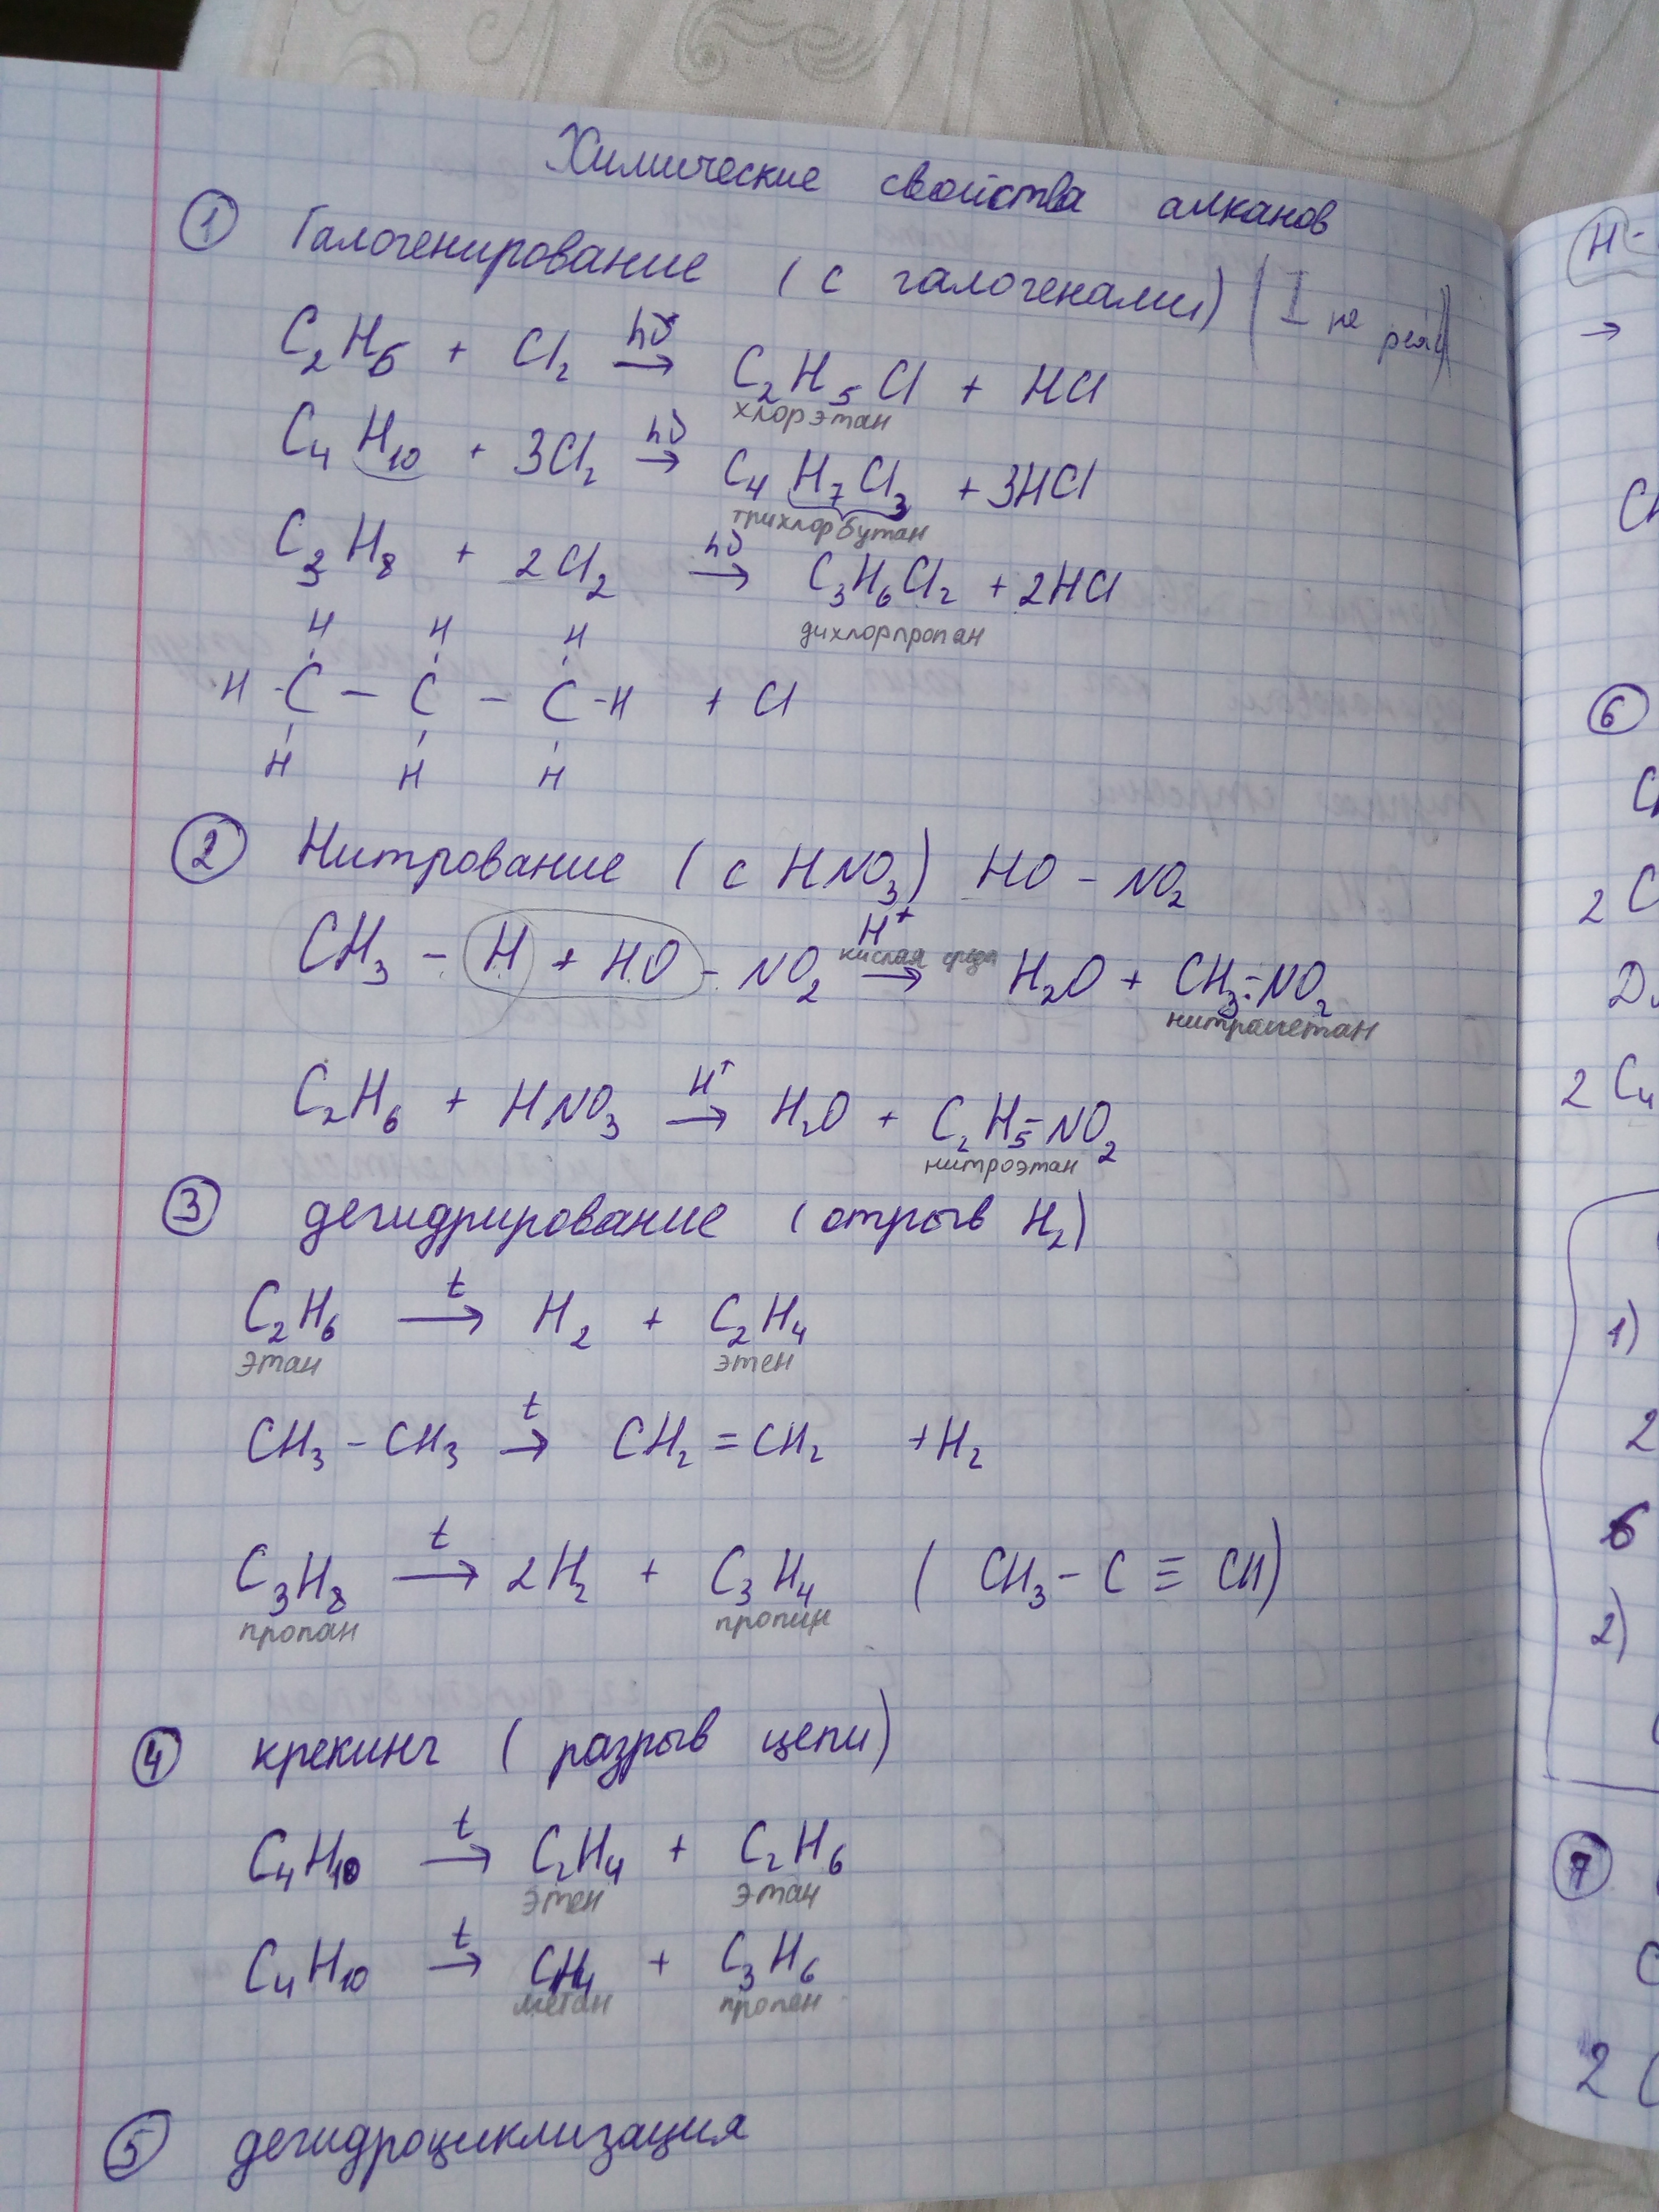 Химические свойства алканов
① Галогенирование (с галогенами) (I не реаг)
C₂H₆ + Cl₂ →hν C₂H₅Cl + HCl
хлорэтан
C₄H₁₀ + 3Cl₂ →hν C₄H₇Cl₃ + 3HCl
трихлорбутан
C₃H₈ + 2Cl₂ →hν C₃H₆Cl₂ + 2HCl
дихлорпропан
H H H
H - C - C - C - H + Cl
H H H
② Нитрование (с HNO₃) HO - NO₂
CH₃ - H + HO - NO₂ →H⁺ H₂O + CH₃-NO₂
кислая среда
нитраметан
C₂H₆ + HNO₃ →H⁺ H₂O + C₂H₅-NO₂
нитроэтан
③ дегидрирование (отрыв H₂)
C₂H₆ →t H₂ + C₂H₄
этан этен
CH₃ - CH₃ →t CH₂ = CH₂ + H₂
C₃H₈ →t 2H₂ + C₃H₄ (CH₃ - C ≡ CH)
пропан пропин
④ крекинг (разрыв цепи)
C₄H₁₀ →t C₂H₄ + C₂H₆
этен этан
C₄H₁₀ →t CH₄ + C₃H₆
метан пропен
⑤ дегидроциклизация
H -
→
⑥
2 C
2 C₄
1)
2
6
2)
⑦
2